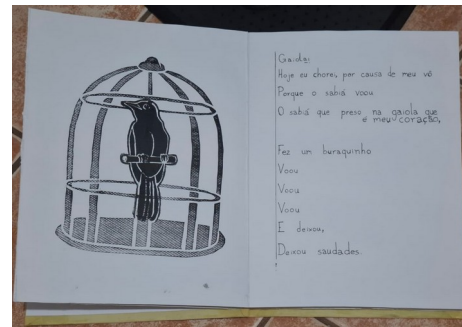 Gaiola:
Hoje eu chorei, por causa de meu vô
Porque o sabiá voou
O sabiá que preso na gaiola que
é meu coração,
Fez um buraquinho
Voou
Voou
Voou
E deixou,
Deixou saudades.